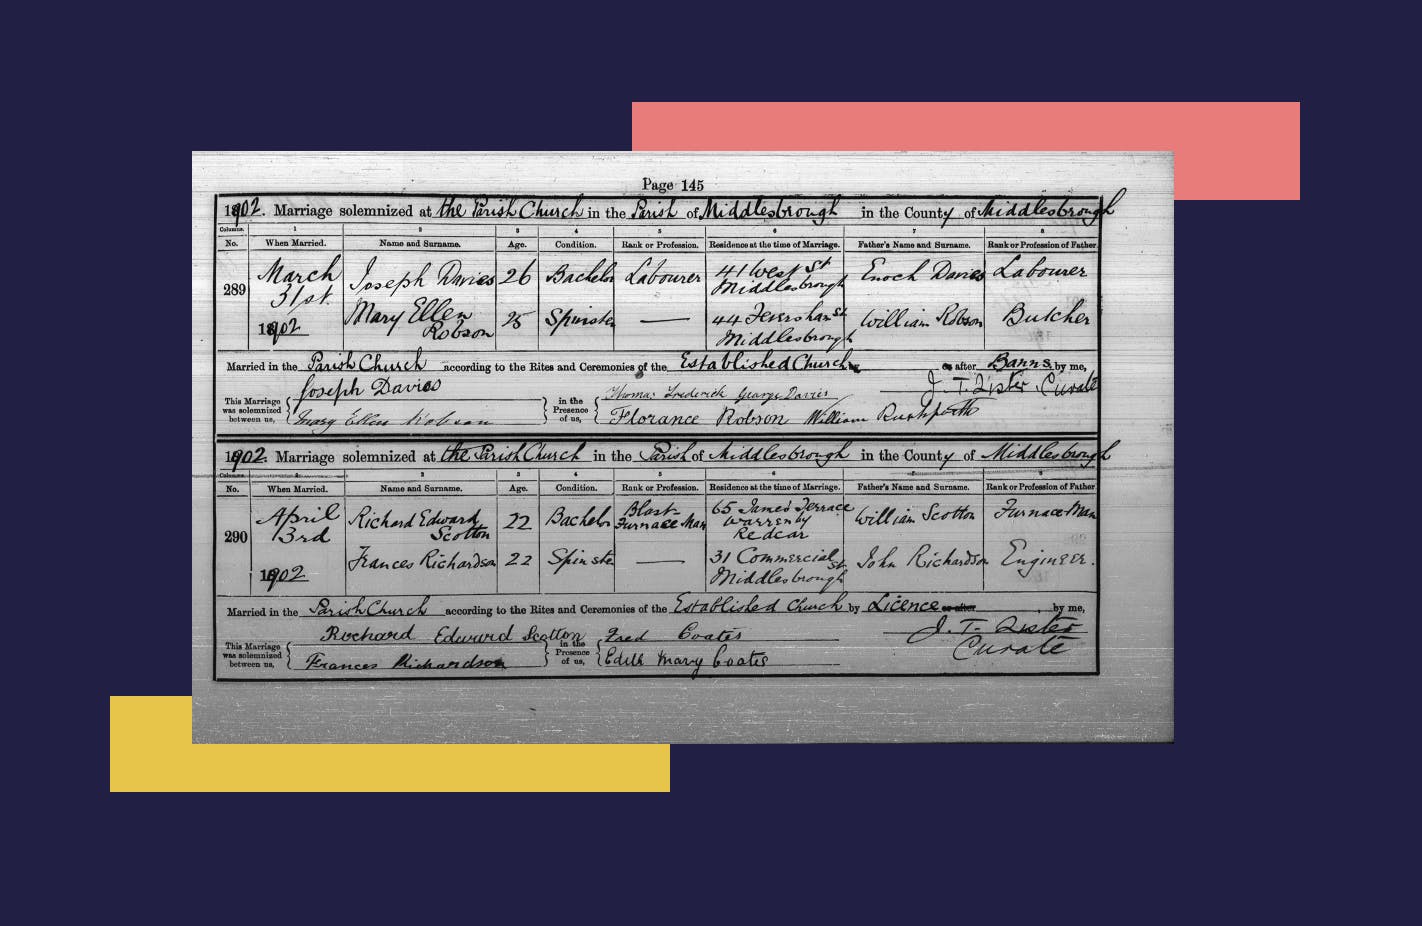 Page 145
1902. Marriage solemnized at the Parish Church in the Parish of Middlesbrough in the County of Middlesbrough
Columns. 1 2 3 4 5 6 7 8
No. When Married. Name and Surname. Age. Condition. Rank or Profession. Residence at the time of Marriage. Father's Name and Surname. Rank or Profession of Father.
289 March 31st 1902 Joseph Davies 26 Bachelor Labourer 41 West St Middlesbrough Enoch Davies Labourer
Mary Ellen Robson 25 Spinster — 44 Feversham St Middlesbrough William Robson Butcher
Married in the Parish Church according to the Rites and Ceremonies of the Established Church by or after Banns by me,
This Marriage was solemnized between us, Joseph Davies in the Presence of us, Thomas Frederick George Davies J. T. Lister, Curate
Mary Ellen Robson Florance Robson William Rushforth
1902. Marriage solemnized at the Parish Church in the Parish of Middlesbrough in the County of Middlesbrough
Columns. 1 2 3 4 5 6 7 8
No. When Married. Name and Surname. Age. Condition. Rank or Profession. Residence at the time of Marriage. Father's Name and Surname. Rank or Profession of Father.
290 April 3rd 1902 Richard Edward Scotton 22 Bachelor Blast-Furnace Man 65 James Terrace Warrenby Redcar William Scotton Furnace Man
Frances Richardson 22 Spinster — 31 Commercial St. Middlesbrough John Richardson Engineer.
Married in the Parish Church according to the Rites and Ceremonies of the Established Church by Licence or after , by me,
This Marriage was solemnized between us, Richard Edward Scotton in the Presence of us, Fred Coates J. T. Lister
Frances Richardson Edith Mary Coates Curate